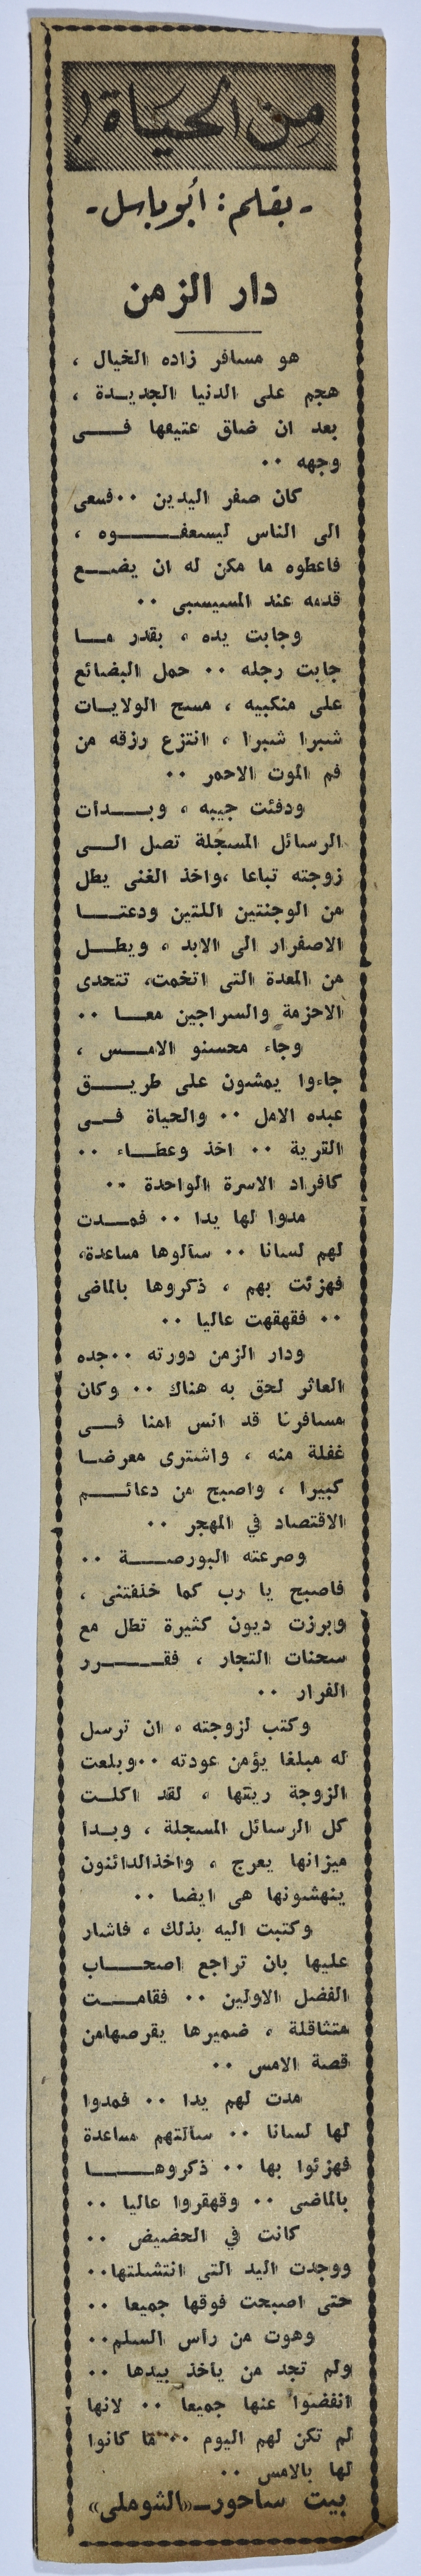 من الحياة !
- بقلم : أبو باسل -
دار الزمن
هو مسافر زاده الخيال ،
هجم على الدنيا الجديدة ،
بعد ان ضاق عتيقها فى
وجهه ..
كان صفر اليدين .. فسعى
الى الناس ليسعفوه ،
فاعطوه ما مكن له ان يضع
قدمه عند المسيسبى ..
وجابت يده ، بقدر ما
جابت رجله .. حمل البضائع
على منكبيه ، مسح الولايات
شبرا شبرا ، انتزع رزقه من
فم الموت الاحمر ..
ودفئت جيبه ، وبدات
الرسائل المسجلة تصل الى
زوجته تباعا ،واخذ الغنى يطل
من الوجنتين اللتين ودعتا
الاصفرار الى الابد ، ويطل
من المعدة التى اتخمت، تتحدى
الاحزمة والسراجين معا ..
وجاء محسنو الامس ،
جاءوا يمشون على طريق
عبده الامل .. والحياة فى
القرية .. اخذ وعطاء ..
كافراد الاسرة الواحدة ..
مدوا لها يدا .. فمدت
لهم لسانا .. سألوها مساعدة،
فهزئت بهم ، ذكروها بالماضى
.. فقهقهت عاليا ..
ودار الزمن دورته ..جده
العاثر لحق به هناك .. وكان
مسافرنا قد انس امنا فى
غفلة منه ، واشترى معرضا
كبيرا ، واصبح من دعائم
الاقتصاد في المهجر ..
وصرعته البورصة ..
فاصبح يا رب كما خلقتنى ،
وبرزت ديون كثيرة تطل مع
سحنات التجار ، فقرر
الفرار ..
وكتب لزوجته ، ان ترسل
له مبلغا يؤمن عودته ..وبلعت
الزوجة ريقها ، لقد اكلت
كل الرسائل المسجلة ، وبدا
ميزانها يعرج ، واخذالدائنون
ينهشونها هى ايضا ..
وكتبت اليه بذلك ، فاشار
عليها بان تراجع اصحاب
الفضل الاولين .. فقامت
متثاقلة ، ضميرها يقرصهامن
قصة الامس ..
مدت لهم يدا .. فمدوا
لها لسانا .. سألتهم مساعدة
فهزئوا بها .. ذكروها
بالماضى .. وقهقروا عاليا ..
كانت في الحضيض ..
ووجدت اليد التى انتشلتها..
حتى اصبحت فوقها جميعا ..
وهوت من رأس السلم..
ولم تجد من يأخذ بيدها ..
انفضوا عنها جميعا .. لانها
لم تكن لهم اليوم .. ما كانوا
لها بالامس ..
بيت ساحور-«الشوملى»